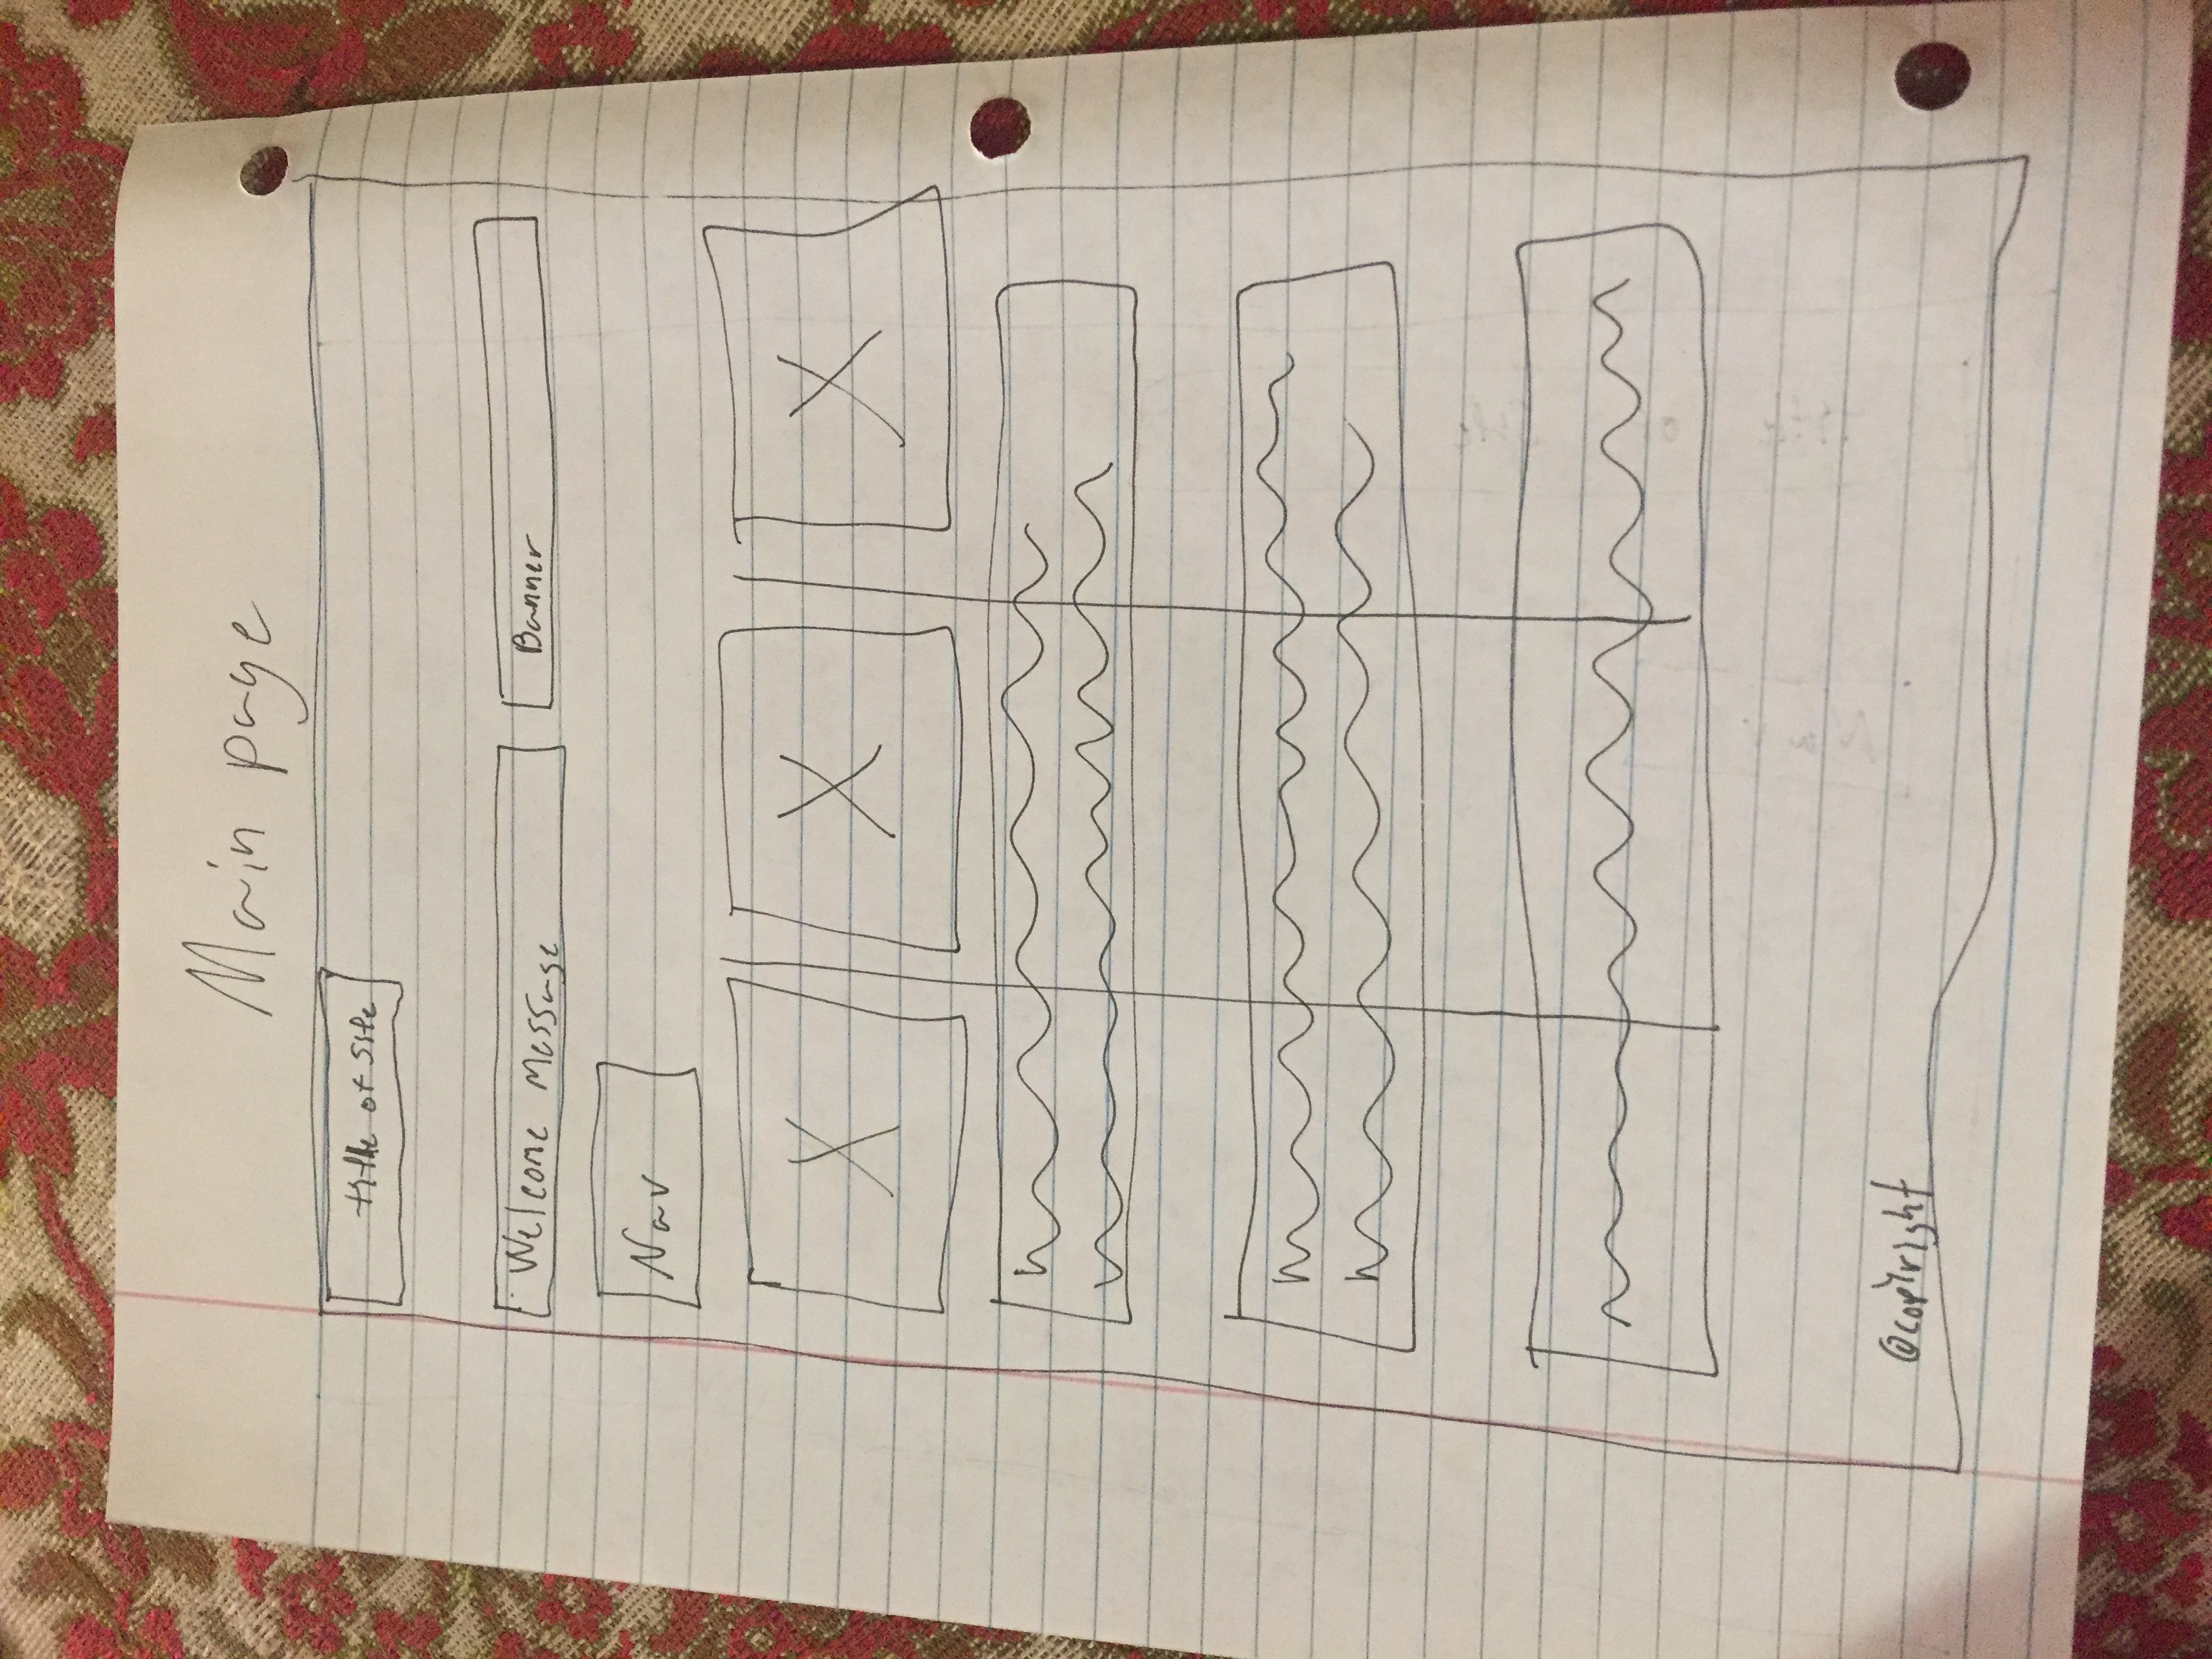 Main page
title of site
Welcome message
Banner
Nav
X X X
@copyright